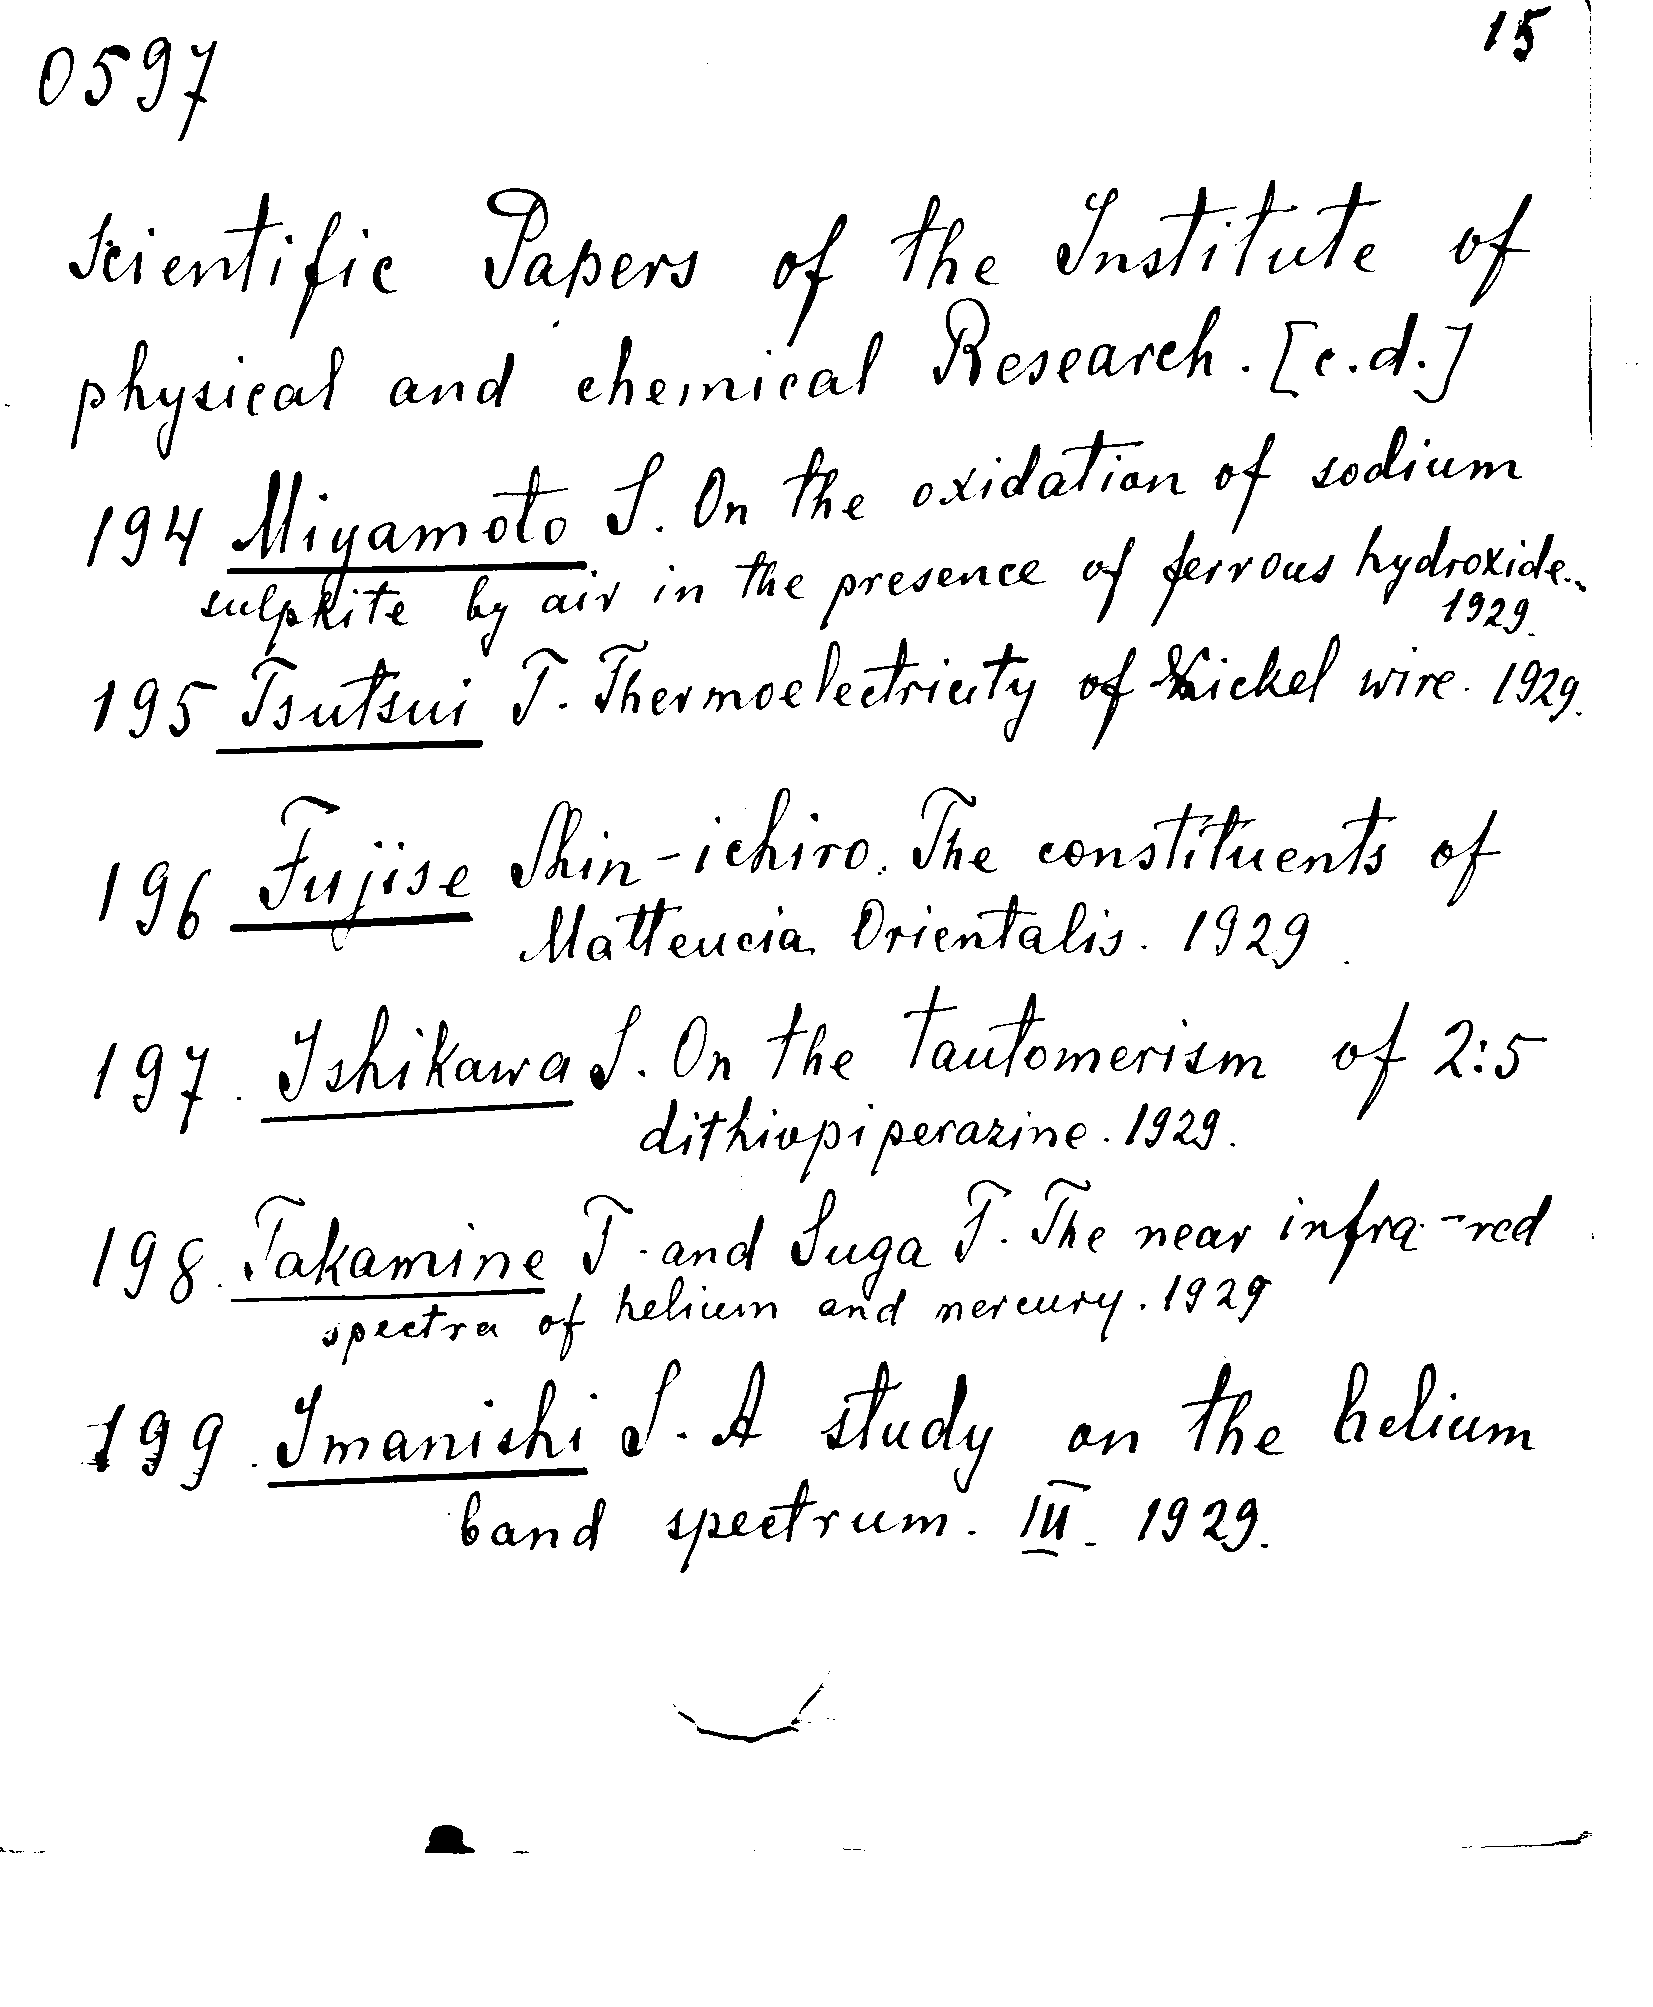 15
0597
Scientific Papers of the Institute of
physical and chemical Research. [c.d.]
194 Miyamoto S. On the oxidation of sodium
sulphite by air in the presence of ferrous hydroxide.
1929.
195 Tsutsui T. Thermoelectricity of Nickel wire. 1929.
196 Fujise Shin-ichiro. The constituents of
Matteucia Orientalis. 1929
197. Ishikawa S. On the tautomerism of 2:5
dithiopiperazine. 1929.
198. Takamine T. and Suga T. The near infra-red
spectra of helium and mercury. 1929
199. Imanishi S. A study on the helium
band spectrum. III. 1929.